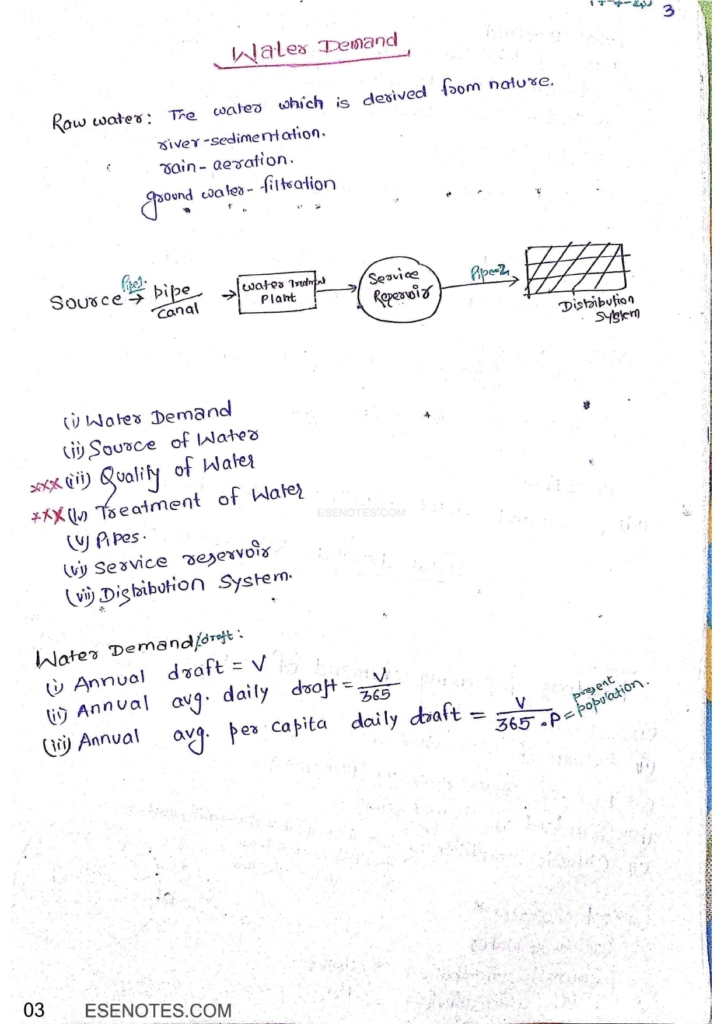 3
Water Demand
Raw water: The water which is derived from nature.
river-sedimentation.
rain-aeration.
ground water-filtration
Source → Pipe1. pipe/canal → Water Treatment Plant → Service Reservoir Pipe-2 → Distribution System
(i) Water Demand
(ii) Source of Water
xxx (iii) Quality of Water
xxx (iv) Treatment of Water
ESENOTES.COM
(v) Pipes.
(vi) Service reservoir
(vii) Distribution System.
Water Demand/draft:
(i) Annual draft = V
(ii) Annual avg. daily draft = V/365
(iii) Annual avg. per capita daily draft = V/365.P = present population.
03 ESENOTES.COM